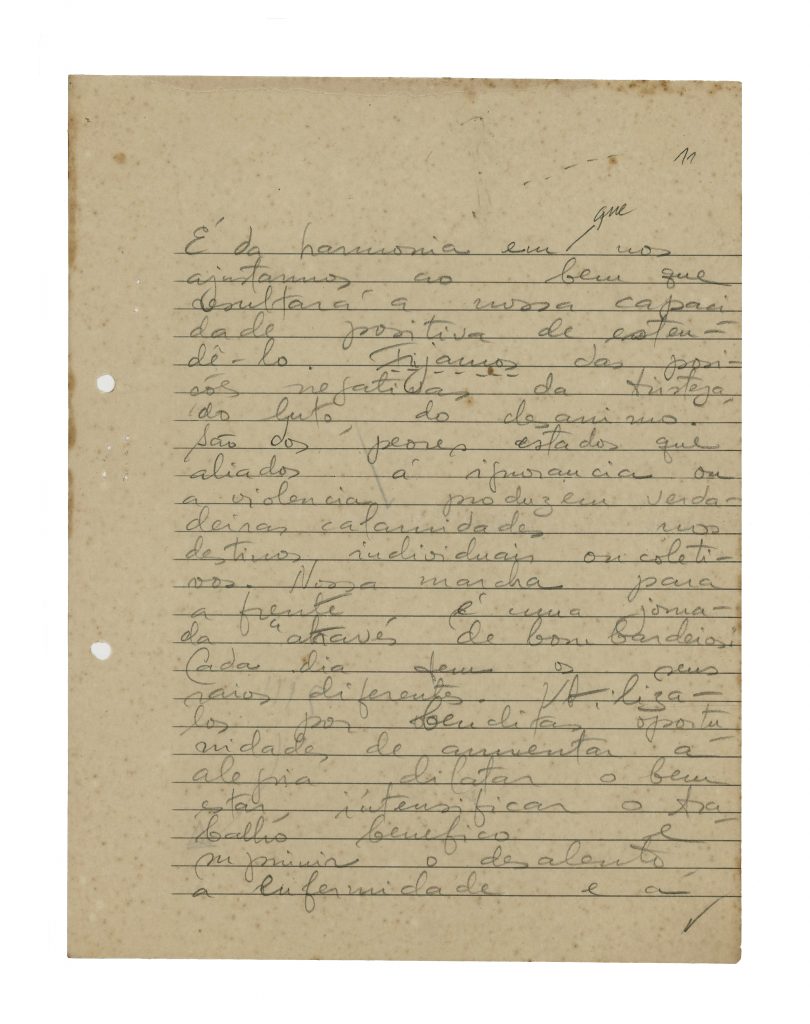 11
que
É da harmonia em nos
ajustarmos ao bem que
resultará a nossa capaci
dade positiva de esten-
dê-lo. Fujamos das posi-
ções negativas da tristeza
do luto do desanimo.
São dos peores estados que
aliados á ignorancia ou
a violencia, produzem verda-
deiras calamidades nos
destinos individuais ou coleti-
vos. Nossa marcha para
a frente é uma jorna-
da através de bombardeios.
Cada dia tem os seus
raios diferentes. Utiliza-
los por benditas oportu
nidades de aumentar a
alegria dilatar o bem
estar intensificar o tra-
balho benefico e
suprimir o desalento
a enfermidade e a